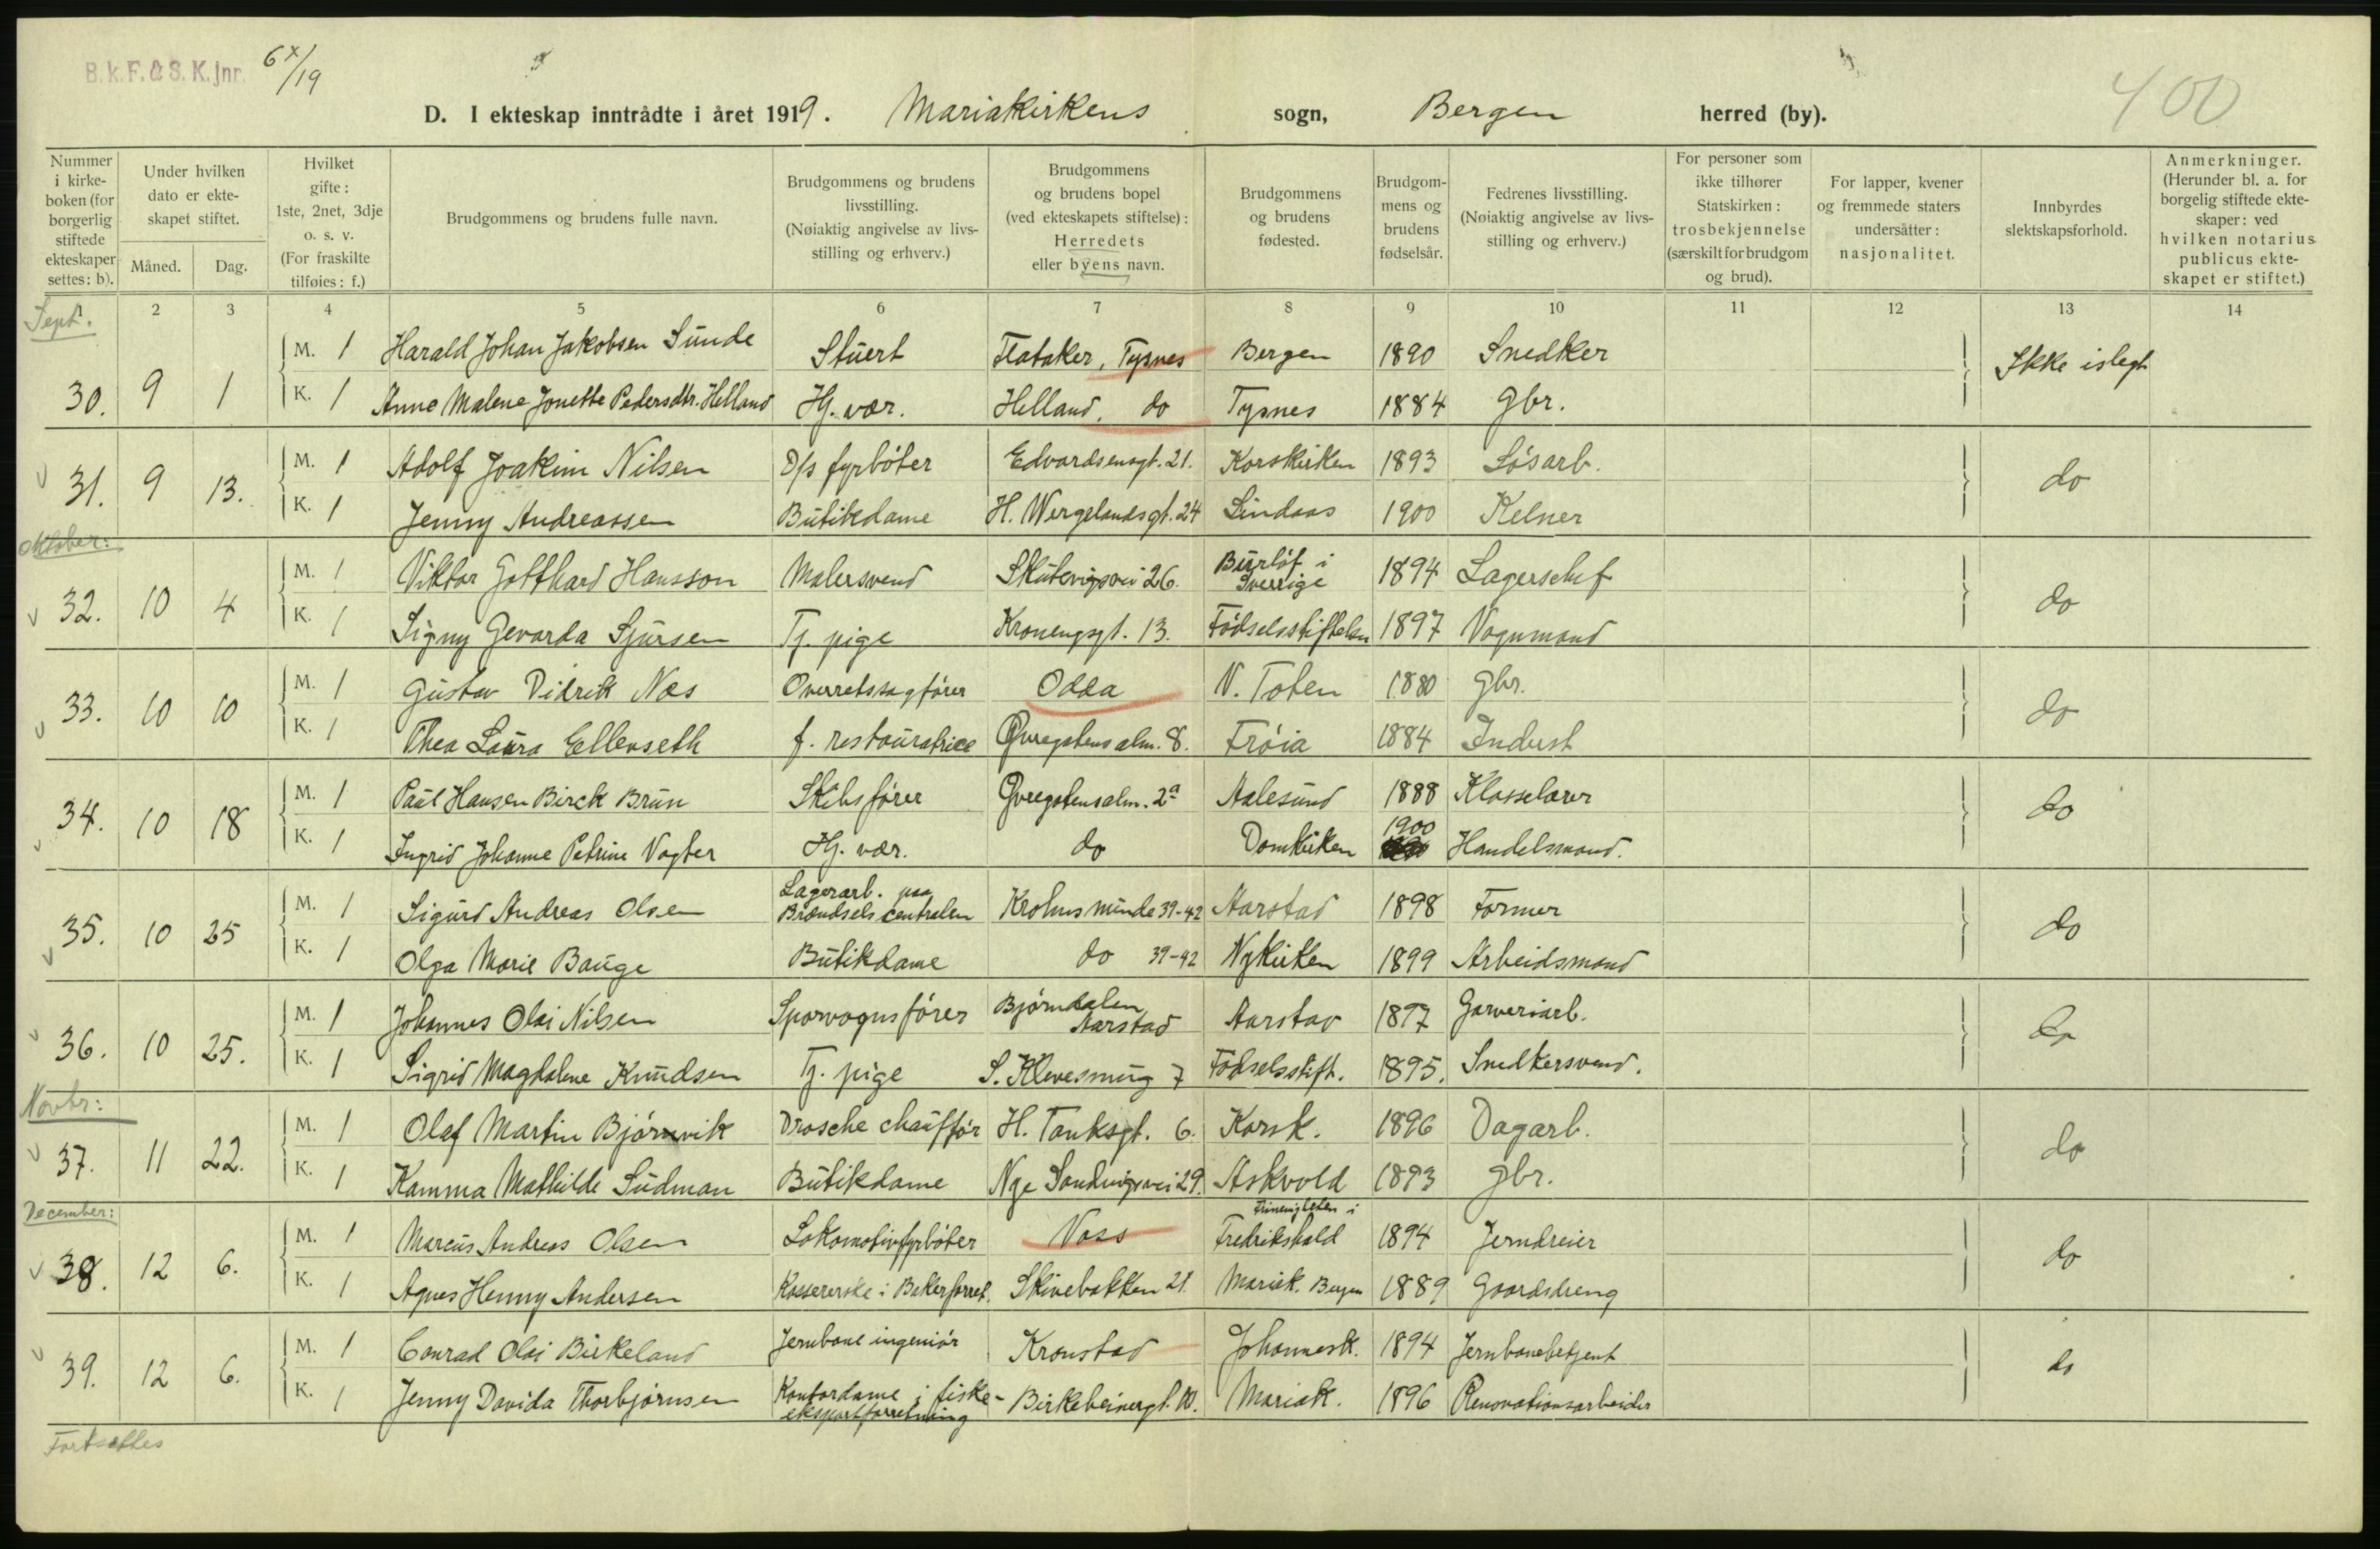 B.k.F. & S. K. jnr. 6x/19
400
D. I ekteskap inntrådte i året 1919. Mariakirkens sogn, Bergen herred (by).
Nummer i kirke-boken (for borgerlig stiftede ekteskaper settes: b).
Under hvilken dato er ekte-skapet stiftet.
Måned. Dag.
Hvilket gifte: 1ste, 2net, 3dje o. s. v. (For fraskilte tilføies: f.)
Brudgommens og brudens fulle navn.
Brudgommens og brudens livsstilling. (Nøiaktig angivelse av livs-stilling og erhverv.)
Brudgommens og brudens bopel (ved ekteskapets stiftelse): Herredets eller byens navn.
Brudgommens og brudens fødested.
Brudgom-mens og brudens fødselsår.
Fedrenes livsstilling. (Nøiaktig angivelse av livs-stilling og erhverv.)
For personer som ikke tilhører Statskirken: trosbekjennelse (særskilt for brudgom og brud).
For lapper, kvener og fremmede staters undersåtter: nasjonalitet.
Innbyrdes slektskapsforhold.
Anmerkninger. (Herunder bl. a. for borgelig stiftede ekte-skaper: ved hvilken notarius publicus ekte-skapet er stiftet.)
1 2 3 4 5 6 7 8 9 10 11 12 13 14
Sept.
M. 1 Harald Johan Jakobsen Sunde Stuert Flataker, Tysnes Bergen 1890 Snedker Ikke islegt
30. 9 1 K. 1 Anne Malene Jonette Pedersdtr. Helland Hj. vær. Helland, do Tysnes 1884 Gbr.
M. 1 Adolf Joakim Nilsen D/s fyrbøter Edvardsensgt. 21. Korskirken 1893 Løsarb. do
31. 9 13. K. 1 Jenny Andreassen Butikdame H. Wergelandsgt. 24 Lindaas 1900 Kelner
Oktober:
M. 1 Viktor Gotthard Hansson Malersvend Skutevigsvei 26. Burløf i Sverrige 1894 Lagerschef do
32. 10 4 K. 1 Signy Gevarda Sjursen Tj. pige Kronengsgt. 13. Fødselsstiftelsen 1897 Vognmand
M. 1 Gustav Didrik Næs Overretssagfører Odda N. Toten 1880 Gbr. do
33. 10 10 K. 1 Thea Laura Ellenseth f. restauratrice Øvregatens alm. 8. Frøia 1884 Indust
M. 1 Paul Hansen Birck Brun Skibsfører Øvregatens alm. 2a Aalesund 1888 Klasselærer do
34. 10 18 K. 1 Ingrid Johanne Petrine Vogter Hj. vær. do Domkirken 1900 Handelsmand.
M. 1 Sigurd Andreas Olsen Lagerarb. paa Brændselscentralen Krohnsminde 39-42 Aarstad 1898 Former do
35. 10 25 K. 1 Olga Marie Bauge Butikdame do 39-42 Nykirken 1899 Arbeidsmand
M. 1 Johannes Olai Nilsen Sporvognsfører Bjørndalen Aarstad Aarstad 1897 Garveriarb. do
36. 10 25. K. 1 Sigrid Magdalene Knudsen Tj. pige S. Klevesmug 7 Fødselsstift. 1895. Snedkersvend.
Novbr:
M. 1 Olaf Martin Bjørnvik Drosche chauffør H. Tanksgt. 6. Korsk. 1896 Dagarb. do
37. 11 22. K. 1 Kamma Mathilde Sudman Butikdame Nye Sandvigsvei 29. Askvold 1893 Gbr.
December:
M. 1 Marcus Andreas Olsen Lokomotivfyrbøter Voss Trinenigheten i Fredrikshald 1894 Jerndreier do
38. 12 6. K. 1 Agnes Henny Andersen Kassererske i Bakerforret. Skivebakken 21 Mariak. Bergen 1889 Gaardsdreng
M. 1 Conrad Olai Birkeland Jernbane ingeniør Kronstad Johannesk. 1894 Jernbanebetjent do
39. 12 6. K. 1 Jenny Davida Thorbjørnsen Kontordame i fiske-eksportforretning Birkebeinergt. 10. Mariak. 1896 Renovationsarbeider
Fortsættes